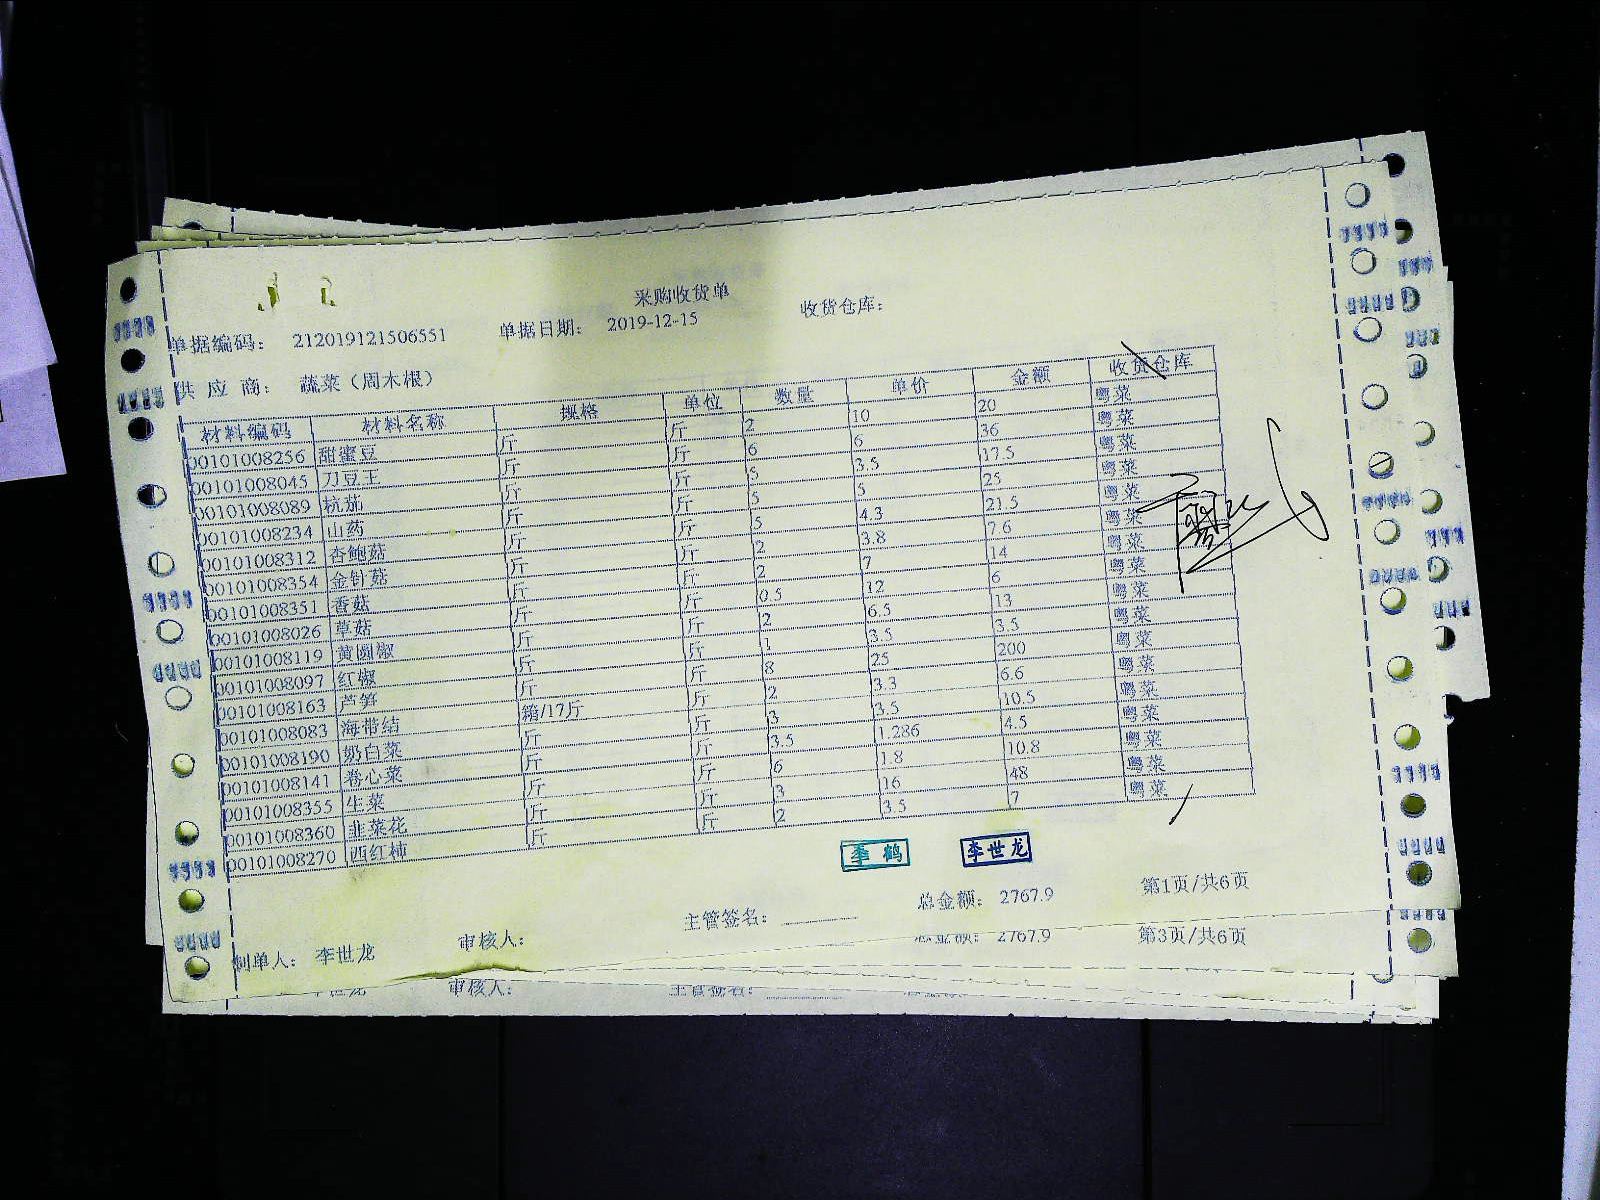 采购收货单
单据编码: 212019121506551 单据日期: 2019-12-15 收货仓库:
供应商: 蔬菜（周木根）
材料编码 材料名称 规格 单位 数量 单价 金额 收货仓库
00101008256 甜蜜豆 斤 斤 2 10 20 粤菜
00101008045 刀豆王 斤 斤 6 6 36 粤菜
00101008089 杭茄 斤 斤 5 3.5 17.5 粤菜
00101008234 山药 斤 斤 5 5 25 粤菜
00101008312 杏鲍菇 斤 斤 5 4.3 21.5 粤菜
00101008354 金针菇 斤 斤 2 3.8 7.6 粤菜
00101008351 香菇 斤 斤 2 7 14 粤菜
00101008026 草菇 斤 斤 0.5 12 6 粤菜
00101008119 黄圆椒 斤 斤 2 6.5 13 粤菜
00101008097 红椒 斤 斤 1 3.5 3.5 粤菜
00101008163 芦笋 箱/17斤 斤 8 25 200 粤菜
00101008083 海带结 斤 斤 2 3.3 6.6 粤菜
00101008190 奶白菜 斤 斤 3 3.5 10.5 粤菜
00101008141 卷心菜 斤 斤 3.5 1.286 4.5 粤菜
00101008355 生菜 斤 斤 6 1.8 10.8 粤菜
00101008360 韭菜花 斤 斤 3 16 48 粤菜
00101008270 西红柿 斤 斤 2 3.5 7 粤菜
李鹤 李世龙
制单人: 李世龙 审核人: 主管签名: 总金额: 2767.9 第1页/共6页
总金额: 2767.9 第3页/共6页
审核人: 主管签名: